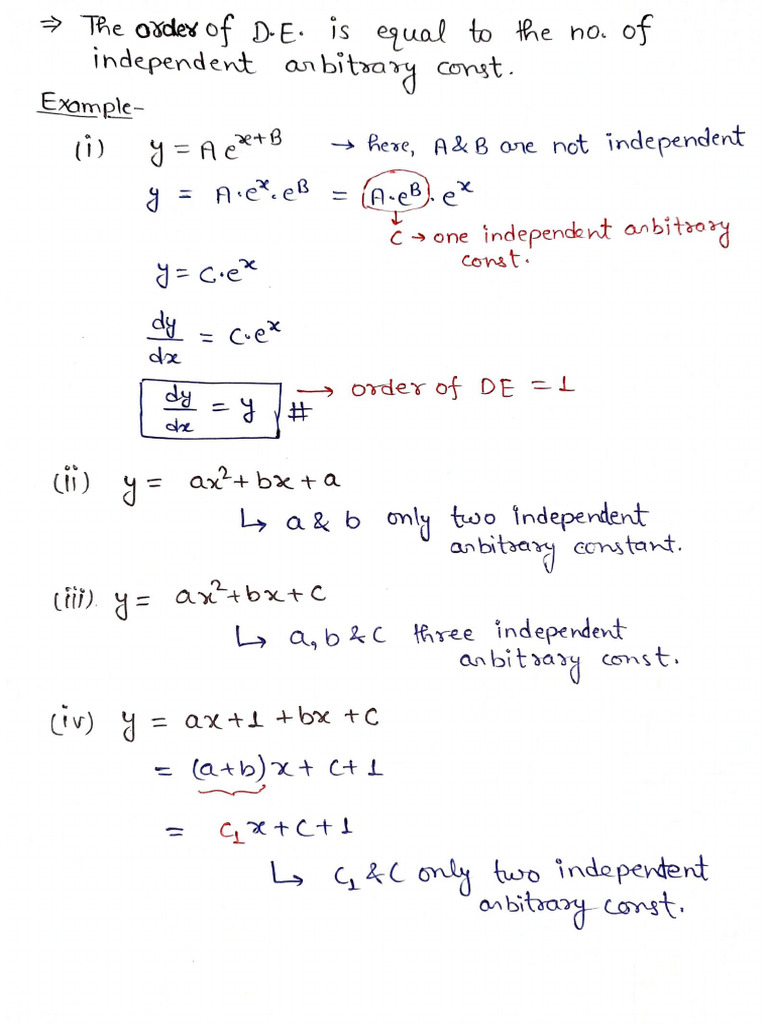 ⇒ The order of D.E. is equal to the no. of
independent arbitrary const.
Example-
(i) y = A e^{x+B} → here, A & B are not independent
y = A·e^x·e^B = (A·e^B)·e^x
↓
C → one independent arbitrary
const.
y = C·e^x
dy/dx = C·e^x
dy/dx = y # → order of DE = 1
(ii) y = ax²+bx+a
↳ a & b only two independent
arbitrary constant.
(iii). y = ax²+bx+C
↳ a, b & C three independent
arbitrary const.
(iv) y = ax+1+bx+C
= (a+b)x + C+1
= C₁x+C+1
↳ C₁ & C only two independent
arbitrary const.